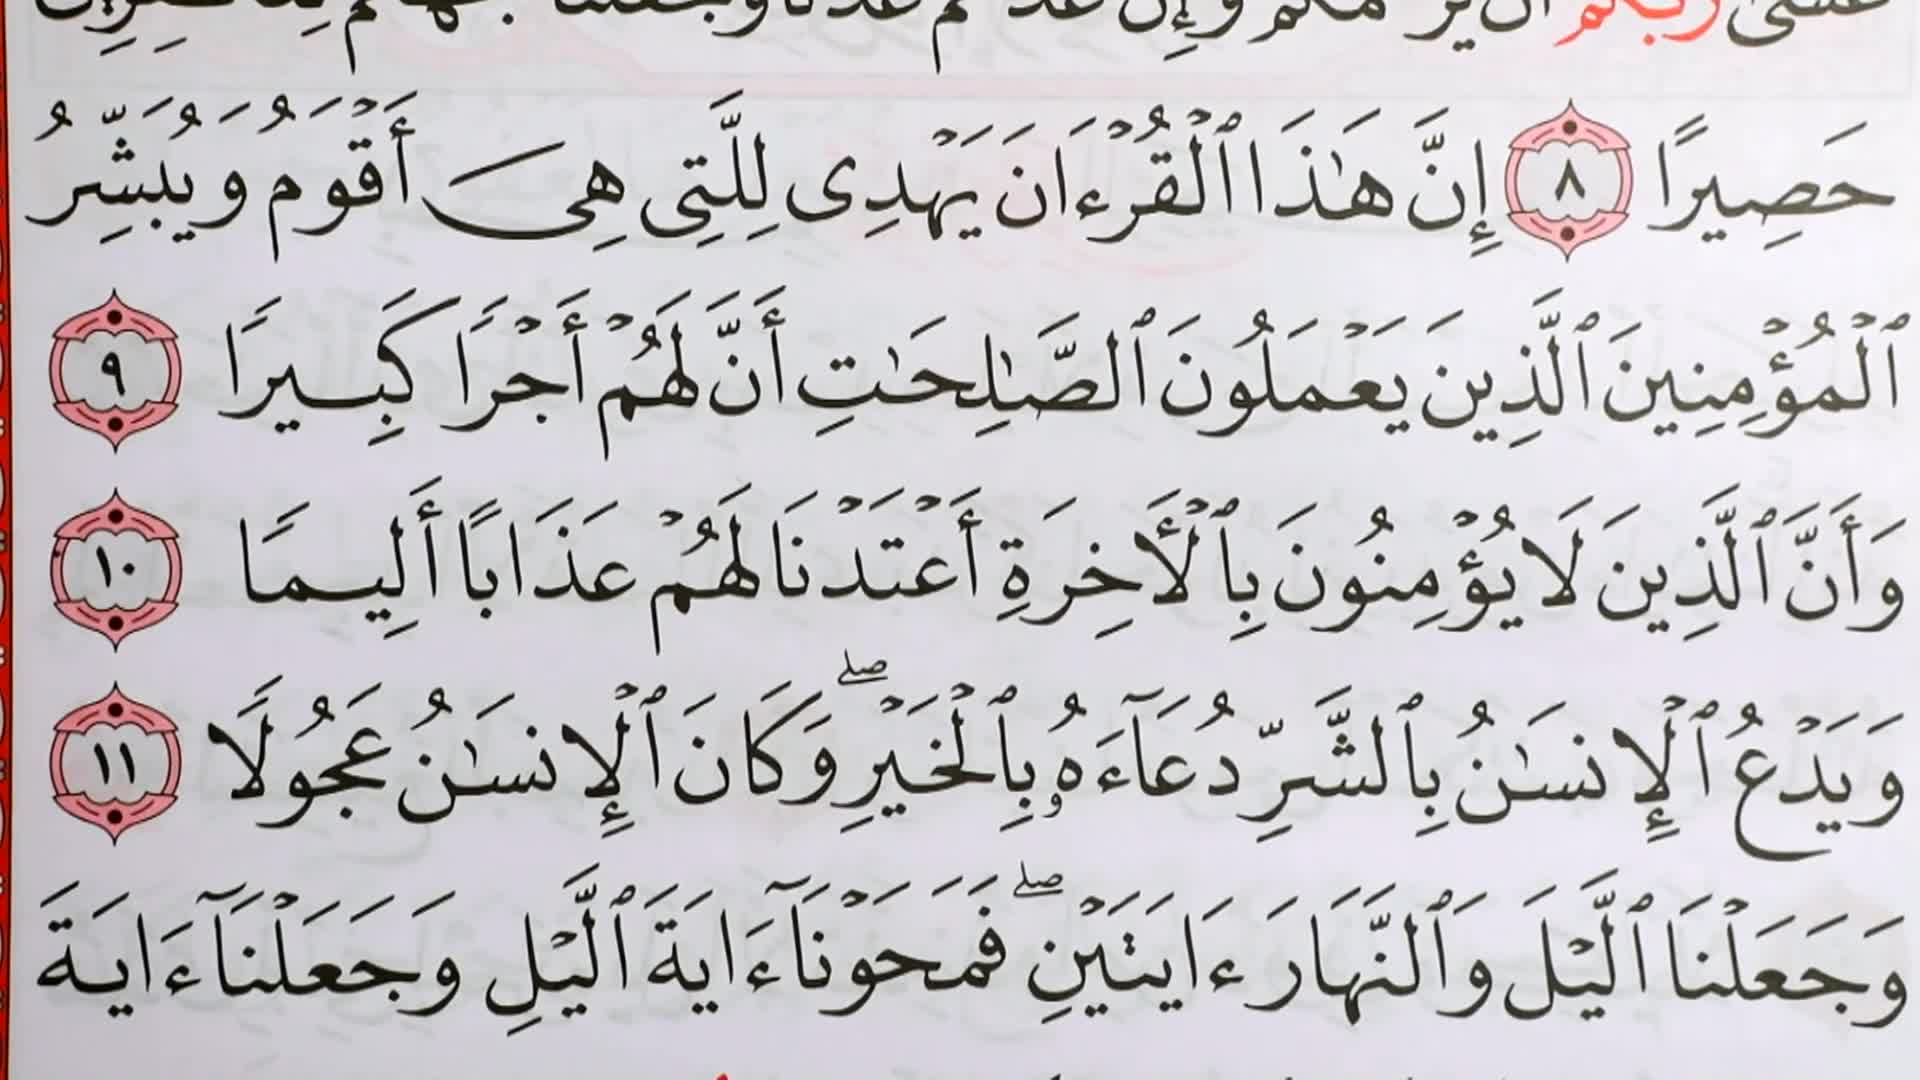 عَسَىٰ رَبُّكُمْ أَن يَرْحَمَكُمْ وَإِنْ عُدتُّمْ عُدْنَا وَجَعَلْنَا جَهَنَّمَ لِلْكَٰفِرِينَ
حَصِيرًا ٨ إِنَّ هَٰذَا ٱلْقُرْءَانَ يَهْدِى لِلَّتِى هِىَ أَقْوَمُ وَيُبَشِّرُ
ٱلْمُؤْمِنِينَ ٱلَّذِينَ يَعْمَلُونَ ٱلصَّٰلِحَٰتِ أَنَّ لَهُمْ أَجْرًا كَبِيرًا ٩
وَأَنَّ ٱلَّذِينَ لَا يُؤْمِنُونَ بِٱلْأَخِرَةِ أَعْتَدْنَا لَهُمْ عَذَابًا أَلِيمًا ١٠
وَيَدْعُ ٱلْإِنسَٰنُ بِٱلشَّرِّ دُعَآءَهُۥ بِٱلْخَيْرِ ۖ وَكَانَ ٱلْإِنسَٰنُ عَجُولًا ١١
وَجَعَلْنَا ٱلَّيْلَ وَٱلنَّهَارَ ءَايَتَيْنِ ۖ فَمَحَوْنَآ ءَايَةَ ٱلَّيْلِ وَجَعَلْنَآ ءَايَةَ